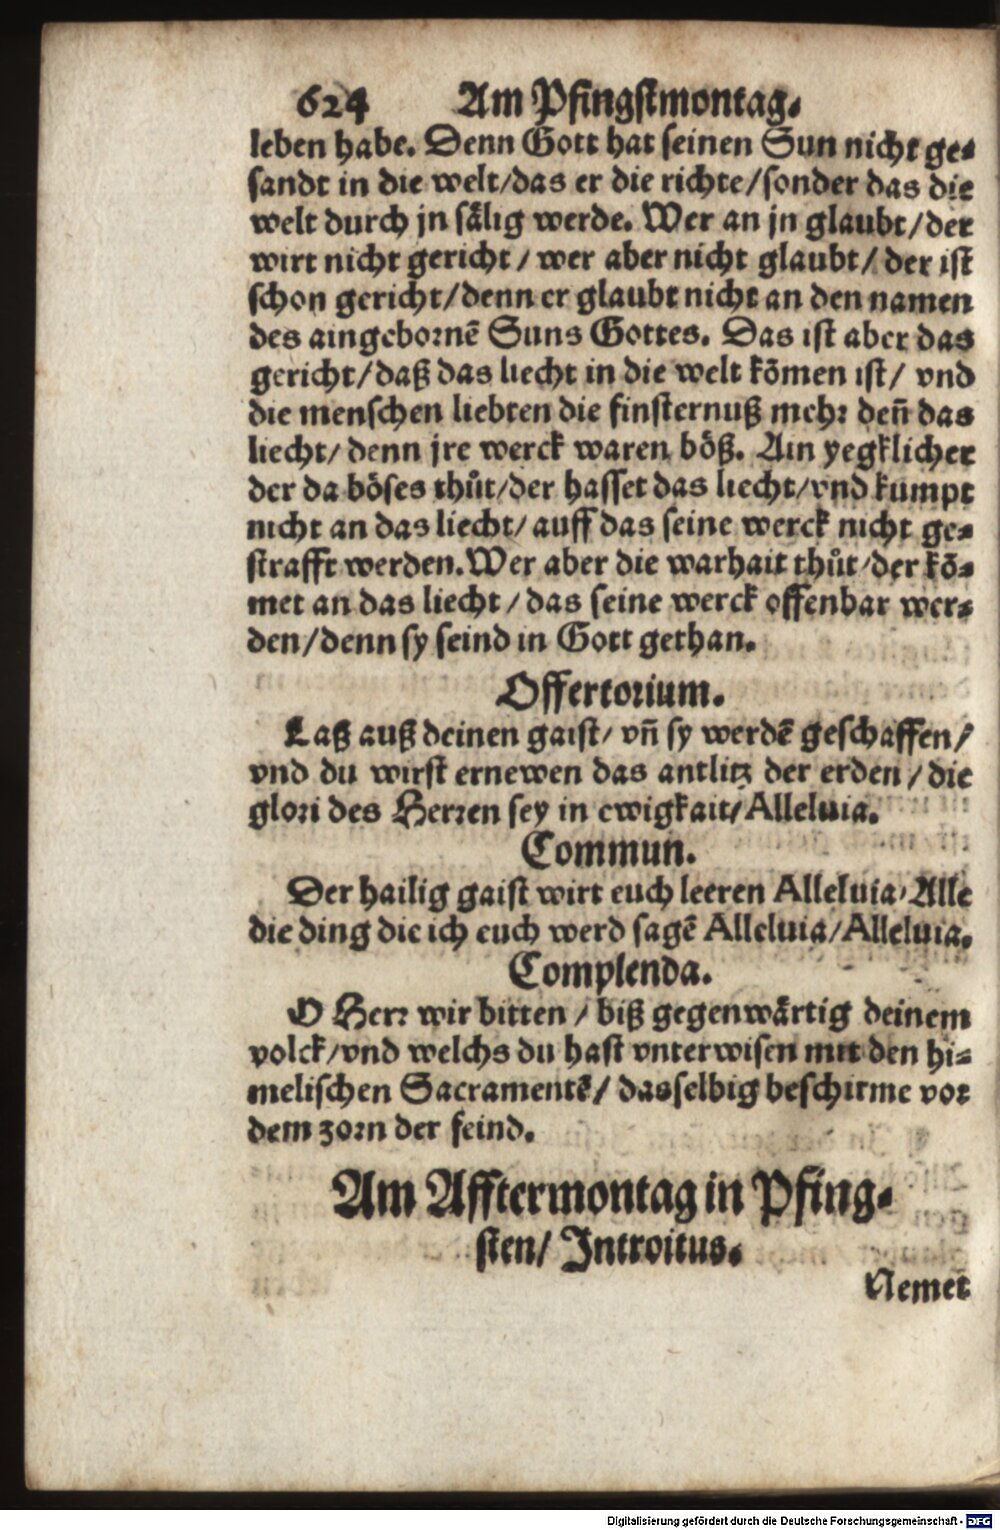 624 Am Pfingstmontag.
leben habe. Denn Gott hat seinen Sun nicht ge-
sandt in die welt/das er die richte/sonder das die
welt durch jn sälig werde. Wer an jn glaubt/der
wirt nicht gericht/ wer aber nicht glaubt/ der ist
schon gericht/denn er glaubt nicht an den namen
des aingebornē Suns Gottes. Das ist aber das
gericht/daß das liecht in die welt kōmen ist/ vnd
die menschen liebten die finsternuß mehr deñ das
liecht/ denn jre werck waren böß. Ain yegklicher
der da böses thůt/der hasset das liecht/vnd kumpt
nicht an das liecht/ auff das seine werck nicht ge-
strafft werden. Wer aber die warhait thůt/der kō-
met an das liecht/das seine werck offenbar wer-
den/denn sy seind in Gott gethan.
Offertorium.
Laß auß deinen gaist/ vñ sy werdē geschaffen/
vnd du wirst ernewen das antlitz der erden/die
glori des Herren sey in ewigkait/Alleluia.
Commun.
Der hailig gaist wirt euch leeren Alleluia/Alle
die ding die ich euch werd sagē Alleluia/Alleluia.
Complenda.
O Herr wir bitten/ biß gegenwärtig deinem
volck/vnd welchs du hast vnterwisen mit den hi-
melischen Sacramentē/ dasselbig beschirme vor
dem zorn der feind.
Am Afftermontag in Pfing-
sten/ Introitus.
Nemet
Digitalisierung gefördert durch die Deutsche Forschungsgemeinschaft - DFG